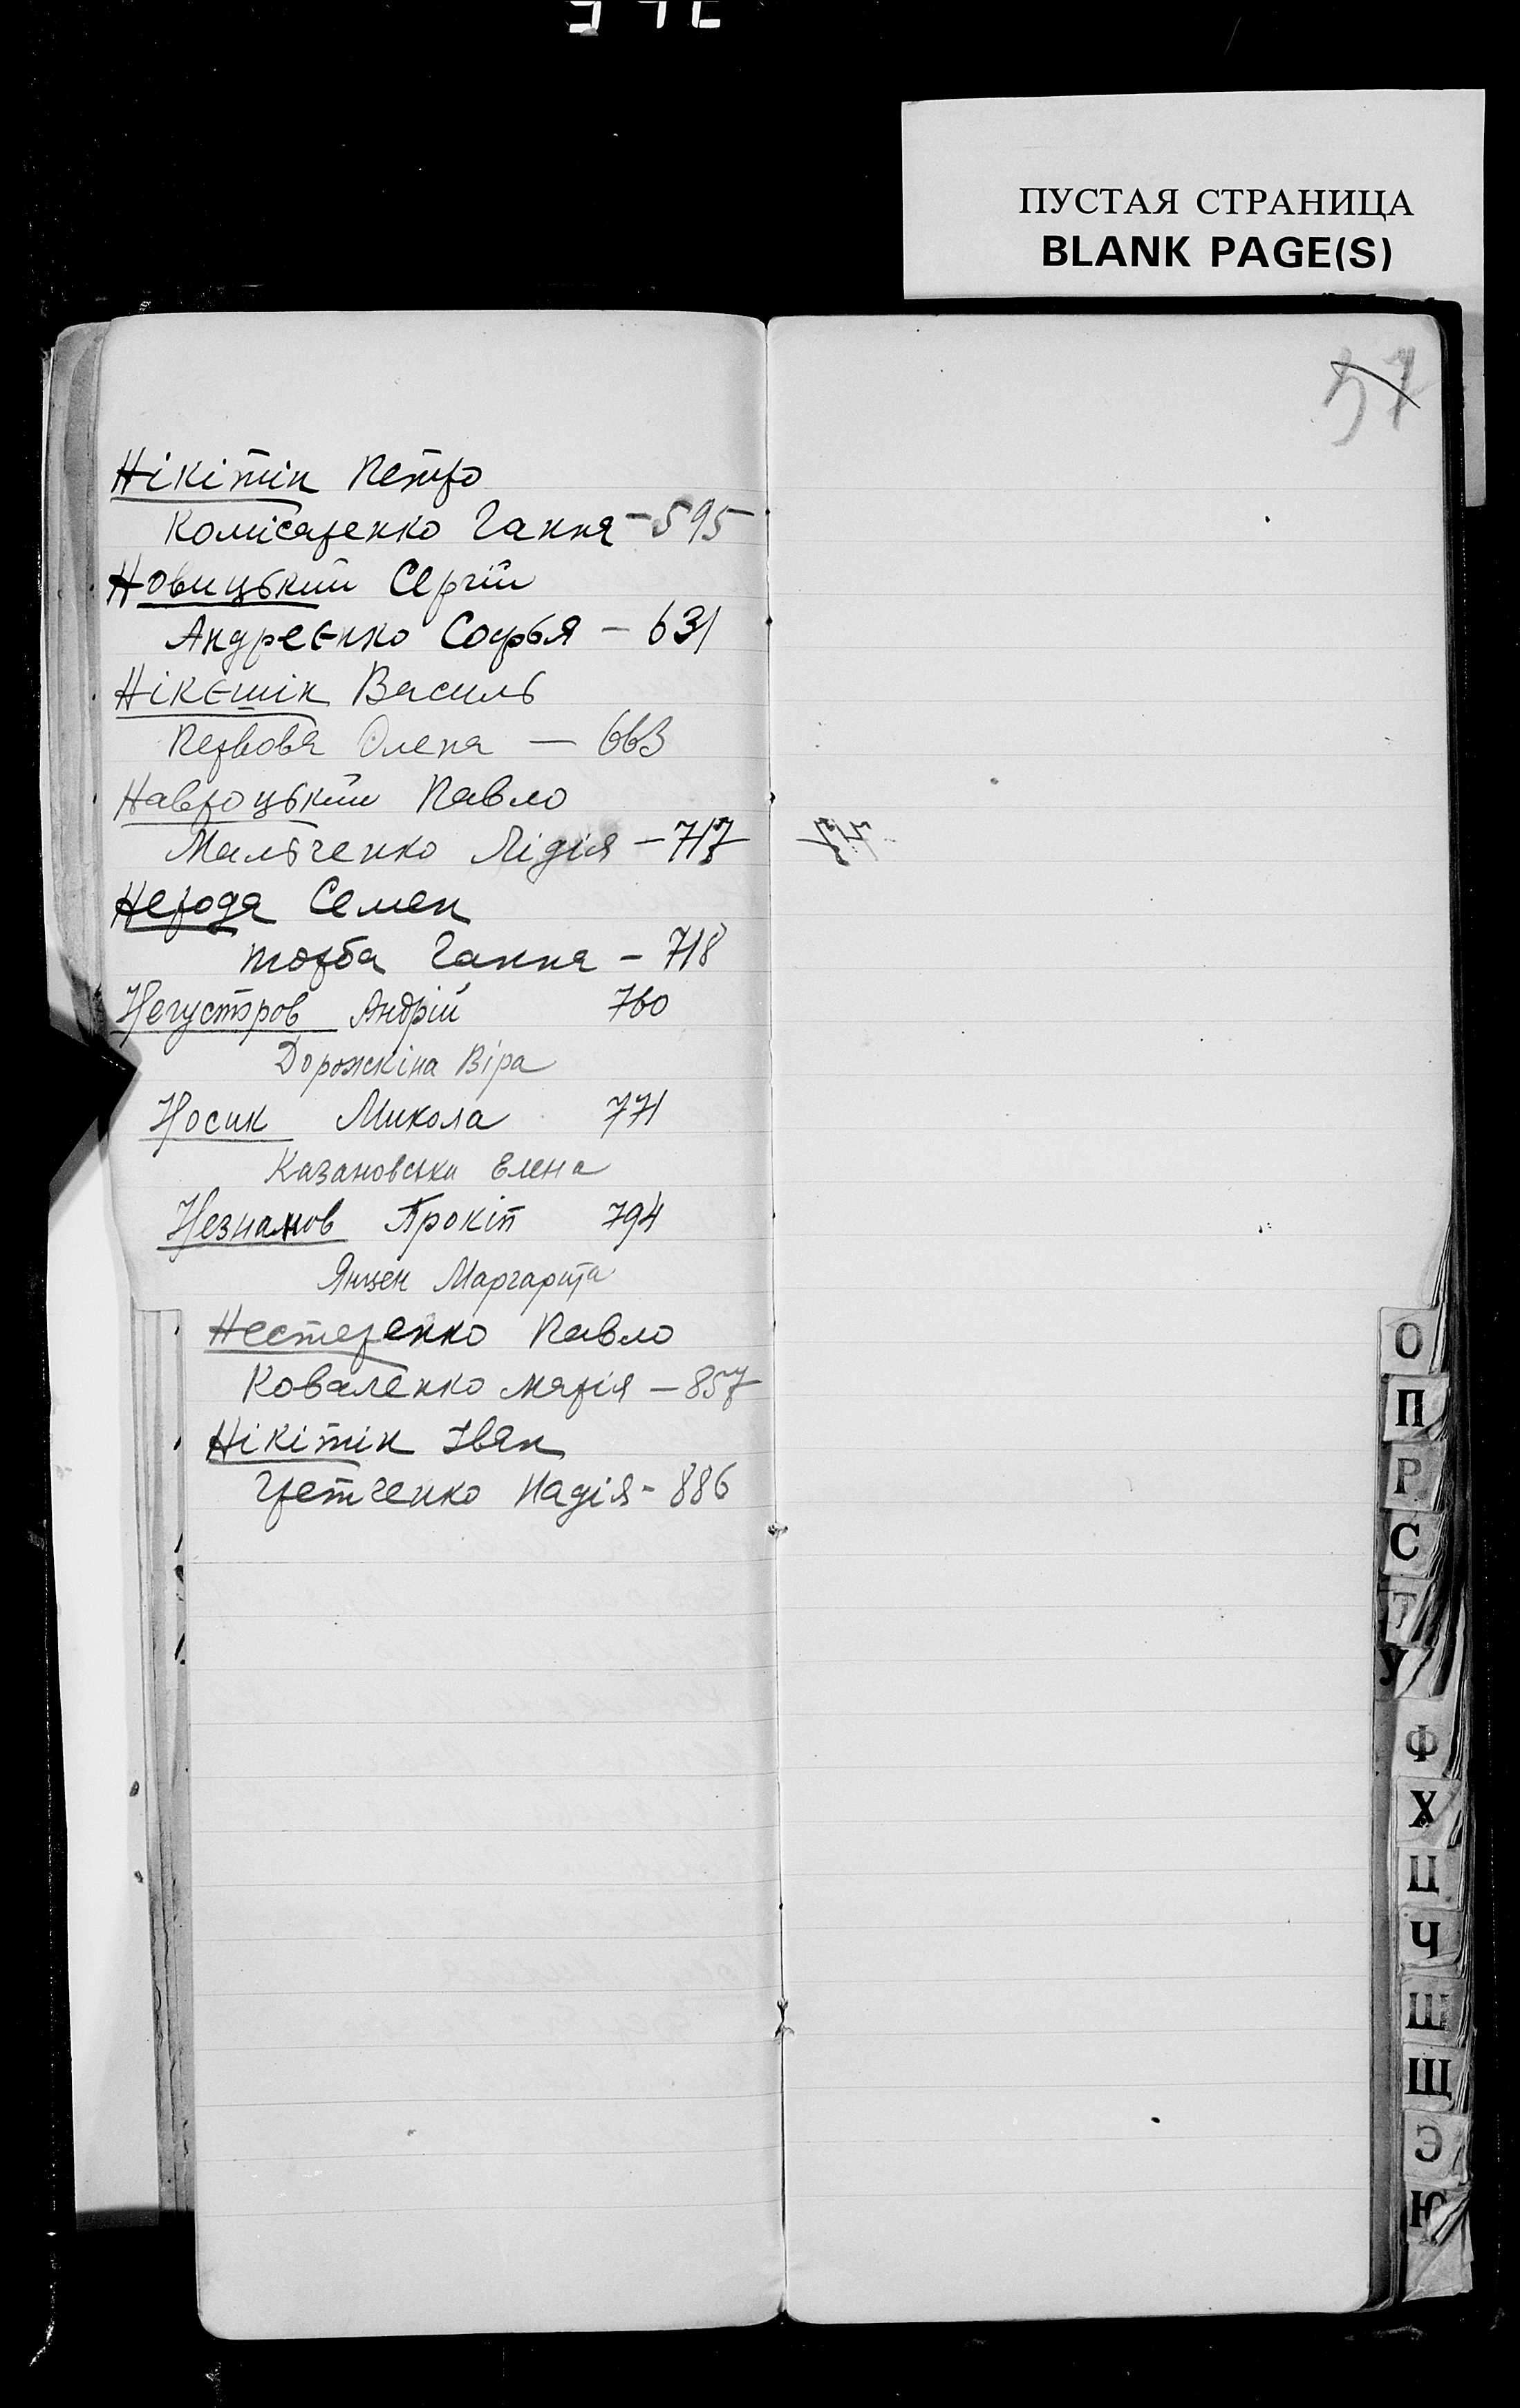 ПУСТАЯ СТРАНИЦА
BLANK PAGE(S)
57
Нікітін Петро
Комісаренко Ганна - 595
Новицький Сергій
Андреєнко Софья - 631
Нікєшін Василь
Первова Олена — 663
Навроцький Павло
Мальченко Лідія - 717
Негода Семен
Торба Ганна - 718
Негустров Андрій 760
Дорожкіна Віра
Носик Микола 771
Казановська Елена
Незнамов Прокіп 794
Янцен Маргарита
Нестеренко Павло
Коваленко Марія - 857
Нікітін Іван
Надія - 886
О
П
Р
С
Т
У
Ф
Х
Ц
Ч
Ш
Щ
Э
Ю